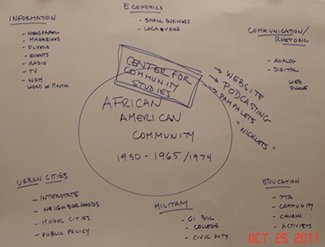 ECONOMICS
- SMALL BUSINESS
- LOCAL
INFORMATION
- NEWSPAPER
- MAGAZINES
- FLYERS
- EVENTS
- RADIO
- TV
- WOM
WORD OF MOUTH
COMMUNICATION/
RHETORIC
- ANALOG
- DIGITAL
WEB
PHONE
CENTER FOR
COMMUNITY
STUDIES
→ WEBSITE
→ PODCASTING
→ PAMPHLETS
AFRICAN
AMERICAN
COMMUNITY
1950 - 1965/1974
URBAN CITIES
- INTERSTATE
- NEIGHBORHOODS
- MODEL CITIES
- PUBLIC POLICY
MILITARY
- GI BILL
- COLLEGE
- CIVIC DUTY
EDUCATION
- PTA
- COMMUNITY
- CHURCH
- ACTIVISTS
OCT 25 2011